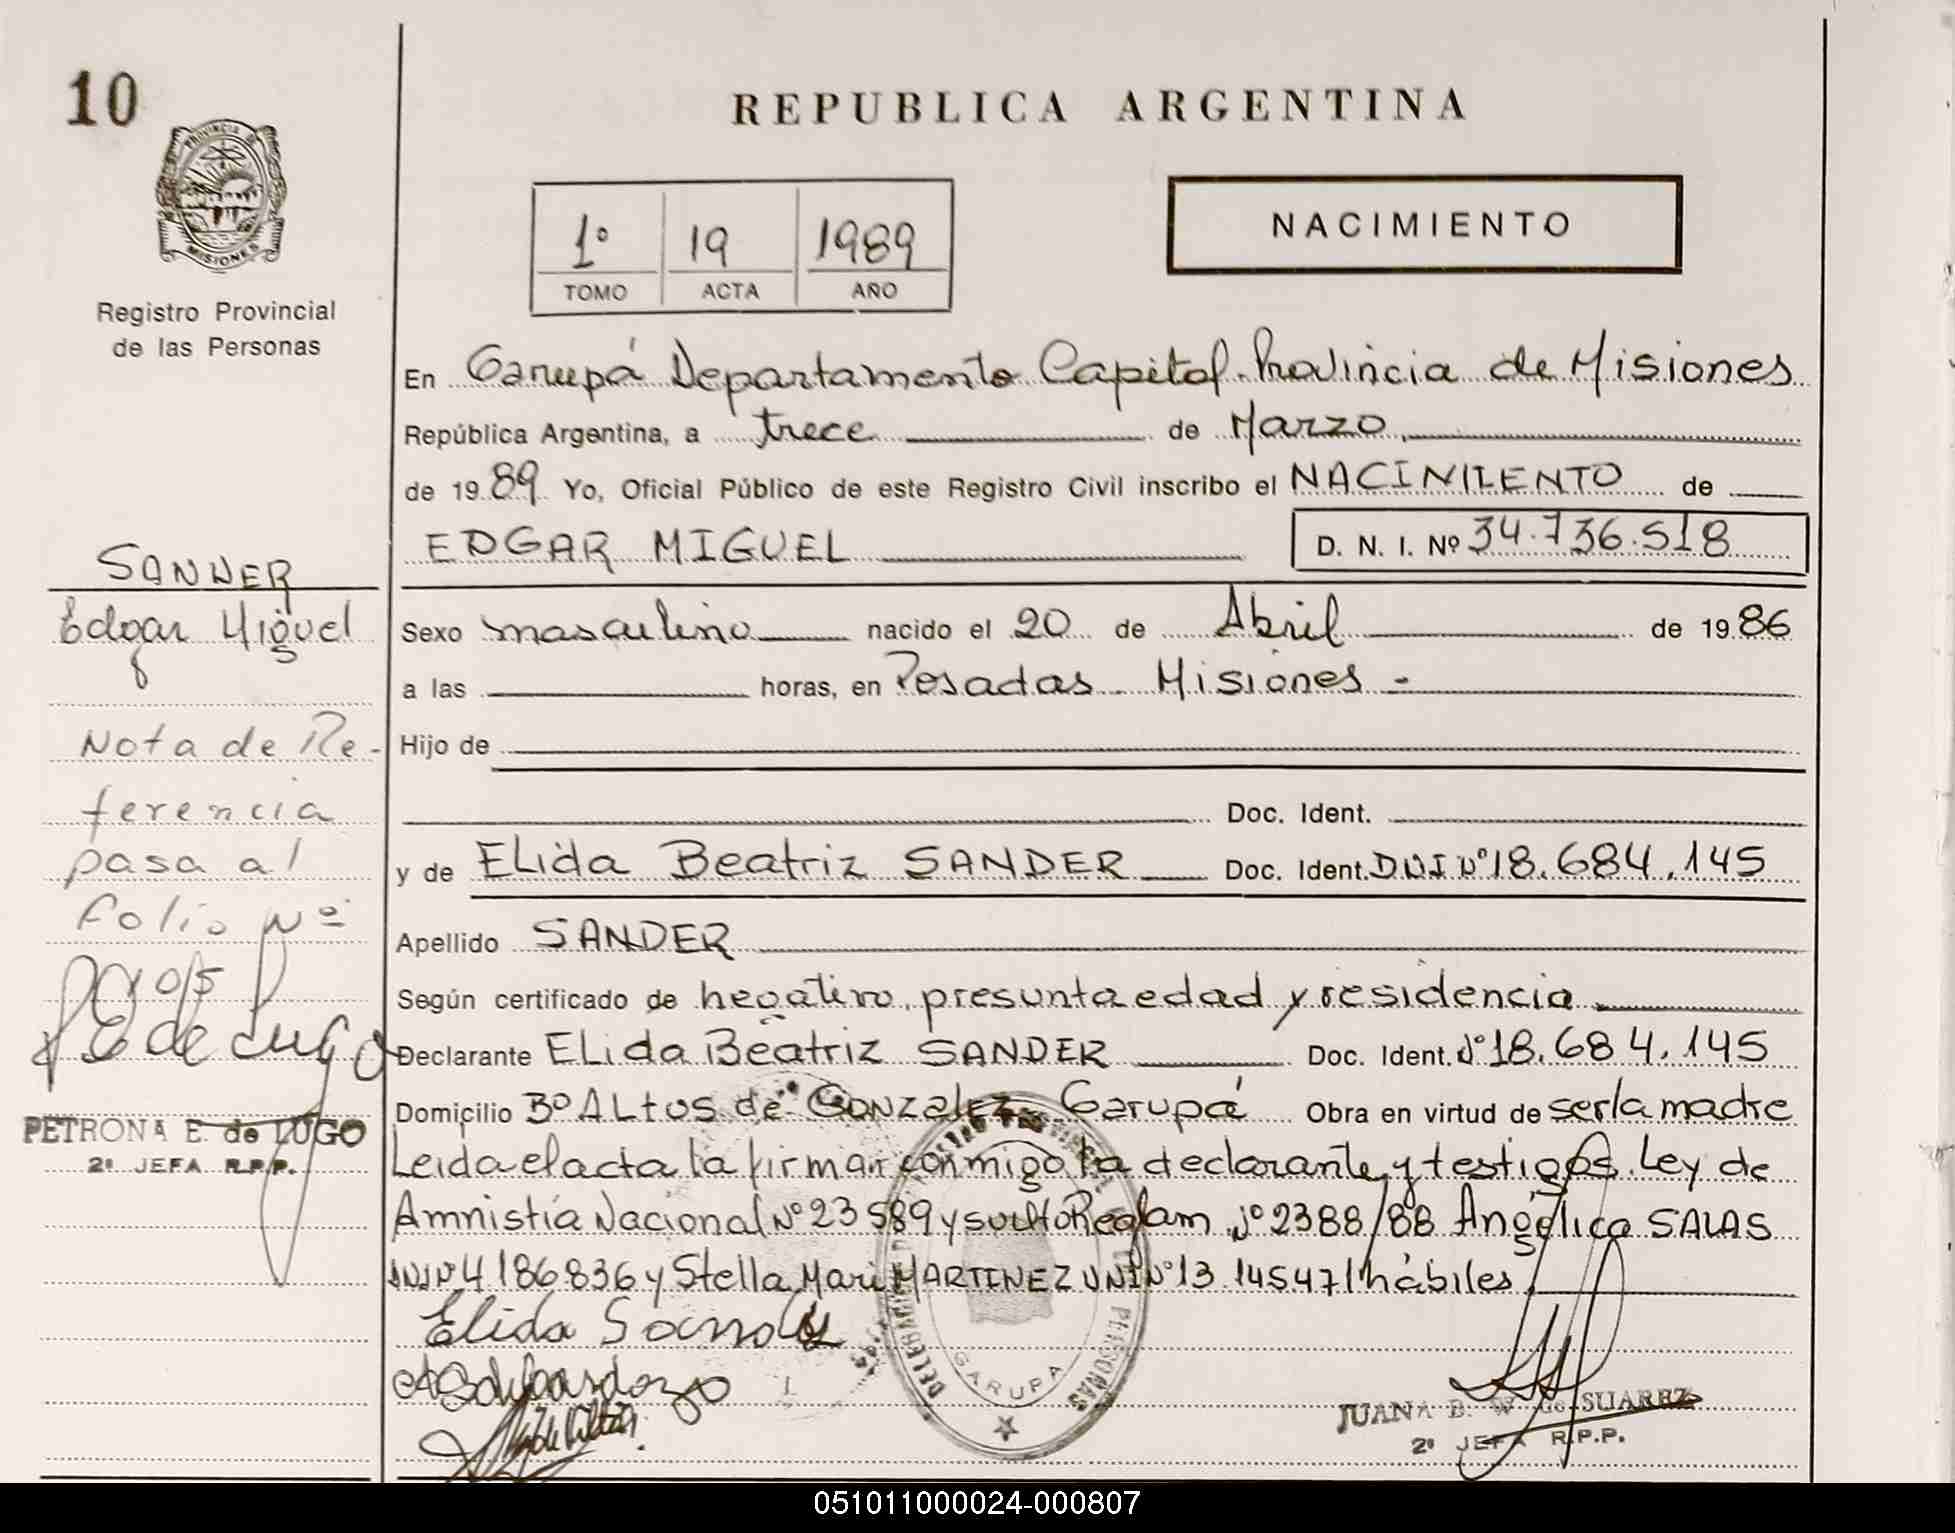 10
PROVINCIA DE
MISIONES
Registro Provincial
de las Personas
REPUBLICA ARGENTINA
1º 19 1989
TOMO ACTA AÑO
NACIMIENTO
En Garupá Departamento Capital Provincia de Misiones
República Argentina, a trece de Marzo
de 1989 Yo, Oficial Público de este Registro Civil inscribo el NACIMIENTO de
EDGAR MIGUEL D. N. I. Nº 34.736.518
SANDER
Edgar Miguel
Sexo masculino nacido el 20 de Abril de 1986
a las horas, en Posadas Misiones -
Hijo de
Doc. Ident.
y de ELida Beatriz SANDER Doc. Ident. DNI Nº 18.684.145
Apellido SANDER
Según certificado de negativo, presunta edad y residencia
Declarante ELida Beatriz SANDER Doc. Ident. Nº 18.684.145
Domicilio Bº ALtos de Gonzalez Garupá Obra en virtud de ser la madre
Leida el acta la firman conmigo la declarante y testigos. Ley de
Amnistía Nacional Nº 23589 y su Reglam Nº 2388/88 Angélica SALAS
4186836 y Stella Mari MARTINEZ Nº 13 145471 hábiles
Nota de Re-
ferencia
pasa al
folio Nº
de Lugo
PETRONA E. de LUGO
2ª JEFA R.P.P.
Elida Sander
GARUPA
PERSONAS
JUANA B. W. de SUAREZ
2ª JEFA R.P.P.
051011000024-000807